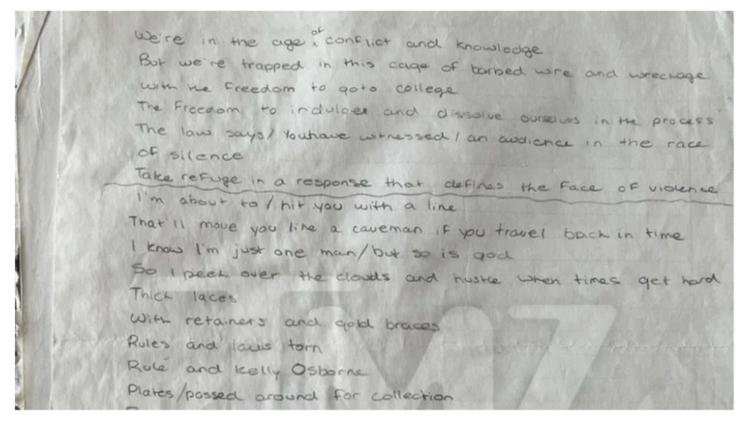 We're in the age of conflict and knowledge
But we're trapped in this cage of barbed wire and wreckage
with the freedom to goto college
The Freedom to indulge and dissolve ourselves in the process
The law says/ Youhave witnessed/ an audience in the race
of silence
Take refuge in a response that defines the face of violence
I'm about to / hit you with a line
That'll move you like a caveman if you travel back in time
I know I'm just one man/but so is god
So I peek over the clouds and hustle when times get hard
Thick laces
with retainers and gold braces
Rules and laws torn
Rule and Kelly Osborne
Plates/passed around for collection
TMZ